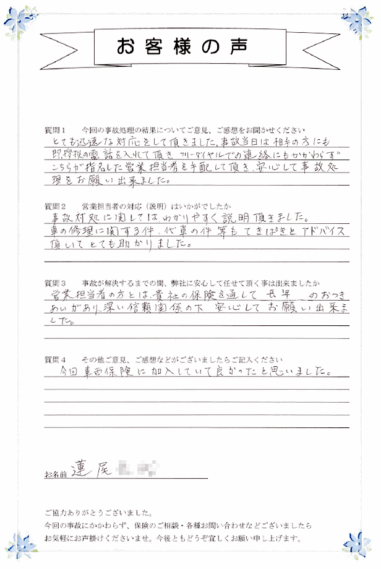 お客様の声
質問1 今回の事故処理の結果についてご意見、ご感想をお聞かせください
とても迅速な対応をして頂きました。事故当日は相手の方にも
即時役の電話を入れて頂き フリーダイヤルでの連絡にもかかわらず
こちらが指名した営業担当者を手配して頂き、安心して事故処
理をお願い出来ました。
質問2 営業担当者の対応(説明)はいかがでしたか
事故対処に関してはわかりやすく説明頂きました。
車の修理に関する件、代車の件等もてきぱきとアドバイス
頂いてとても助かりました。
質問3 事故が解決するまでの間、弊社に安心して任せて頂く事は出来ましたか
営業担当者の方とは、貴社の保険を通して 長年 のおつき
あいがあり、深い信頼関係の下 安心してお願い出来ま
した。
質問4 その他ご意見、ご感想などがございましたらご記入ください
今回車両保険に加入していて良かったと思いました。
お名前 蓮尾
ご協力ありがとうございました。
今回の事故にかかわらず、保険のご相談・各種お問い合わせなどございましたら
お気軽にお声掛けくださいませ。今後ともどうぞ宜しくお願い申し上げます。